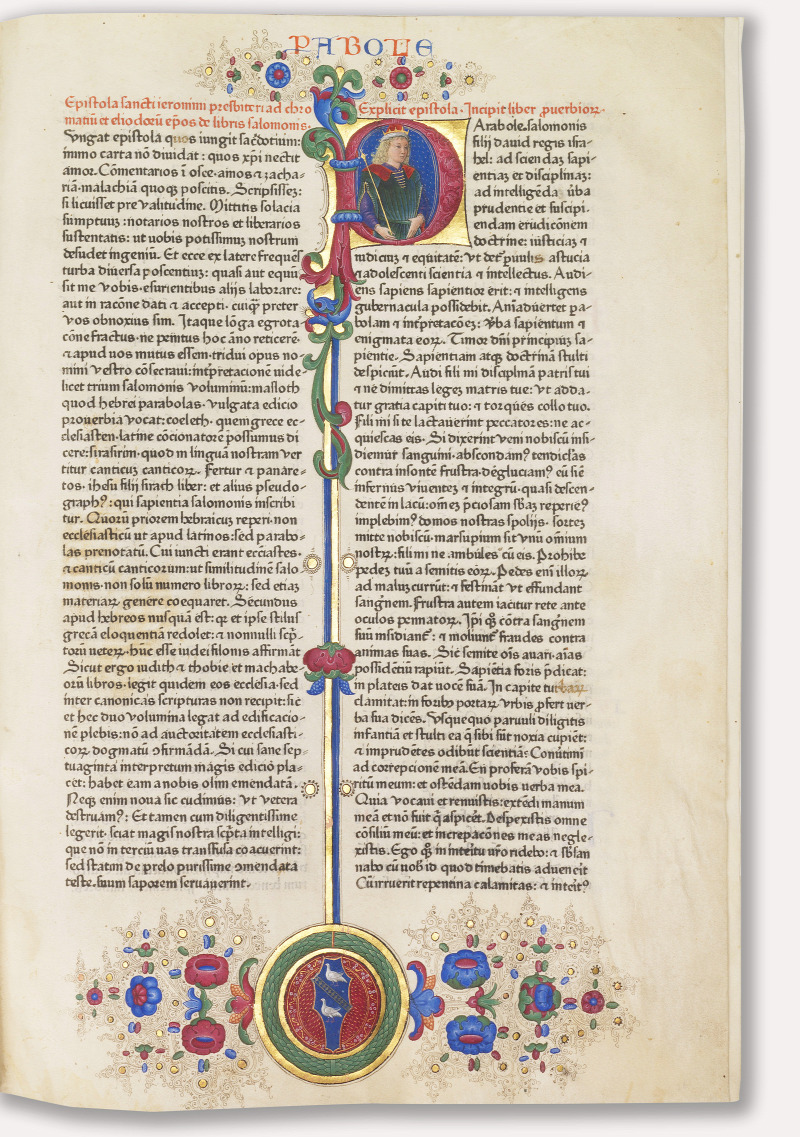 PABOLE
Epistola sancti ieronimi presbiteri ad chro
matiū et eliodorū ep̄os de libris salomonis.
Vngat epistola quos iungit sac̄dotium:
immo carta nō diuidat: quos xp̄i nectit
amor. Cōmentarios ī osee. amos ⁊ zacha-
riā. malachiā quoqꝫ poscitis. Scripsissēꝫ:
si licuisset pre valitudine. Mittitis solacia
sūmptuuꝫ: notarios nostros et librarios
sustentatis: ut uobis potissimuꝫ nostrum
desudet ingeniū. Et ecce ex latere frequēs
turba diuersa poscentiuꝫ: quasi aut equū
sit me vobis. esurientibus alijs laborare:
aut in racōne dati ⁊ accepti. cuiqꝫ preter
vos obnoxius sim. Itaque lōga egrota-
cōne fractus. ne penitus hoc āno reticerē.
⁊ apud uos mutus essem. tridui opus no-
mini vestro cōsecraui: int̄pretacionē uide-
licet trium salomonis voluminū: masloth
quod hebrei parabolas. vulgata edicio
prouerbia vocat: coeleth. quem grece ec-
clesiasten. latine cōcionatorē possumus di
cere: sirasirim. quod in linguā nostram ver
titur canticuꝫ canticoꝝ. Fertur ⁊ panare-
tos. ihesu filij sirach liber: et alius pseudo-
graphꝰ: qui sapientia salomonis inscribi
tur. Quorū priorem hebraicuꝫ reperi. non
ecclesiasticū ut apud latinos: sed parabo-
las prenotatū. Cui iuncti erant eccīastes.
⁊ canticū canticorum: ut similitudinē salo
monis. non solū numero libroꝝ: sed etiaꝫ
materiaꝝ genere coequaret. Secundus
apud hebreos nusquā est: qꝫ et ipse stilus
grecā eloquentiā redolet: ⁊ nonnulli sc̄p-
torū ueteꝝ. hūc esse iudei filonis affirmāt
Sicut ergo iudith ⁊ thobie et machabe-
orū libros. legit quidem eos ecclesia. sed
inter canonicas scripturas non recipit: sic
et hec duo volumina legat ad edificacio-
nē plebis: nō ad auctoritatem ecclesiasti-
coꝝ dogmatū ꝯfirmādā. Si cui sane sep-
tuaginta interpretum magis edicio pla-
cet: habet eam a nobis olim emendatā.
Neqꝫ enim noua sic cudimus: vt vetera
destruāmꝰ: Et tamen cum diligentissime
legerit. sciat magis nostra sc̄pta intelligi:
que nō in terciū uas transfusa coacuerint:
sed statim de prelo purissime ꝯmendata
teste. suum saporem seruauerint.
Explicit epistola. Incipit liber ꝓuerbioꝝ.
Arabole. salomonis
filij dauid regis isra-
hel: ad sciendaꝫ sapi-
entiaꝫ et disciplinaꝫ:
ad intelligēda ūba
prudentie et suscipi-
endam erudicōnem
doctrine: iusticiaꝫ ⁊
iudiciuꝫ ⁊ equitatē: vt det̄ ꝑuulis astucia
⁊ adolescenti scientia ⁊ intellectus. Audi-
ens sapiens sapientior erit: ⁊ intelligens
gubernacula possidebit. Aniaduertet pa-
bolam ⁊ int̄pretacōeꝫ: v̄ba sapientum ⁊
enigmata eoꝝ. Timor dn̄i principiuꝫ sa-
pientie. Sapientiam atqꝫ doctrinā stulti
despiciūt. Audi fili mi disciplinā patris tui
⁊ ne dimittas legeꝫ matris tue: vt adda-
tur gratia capiti tuo: ⁊ torques collo tuo.
Fili mi si te lactauerint peccatores: ne ac-
quiescas eis. Si dixerint veni nobiscū insi-
diemur sanguini. abscondamꝰ tendiclas
contra insontē frustra. deglucíamꝰ eū sicut
infernus viuenteꝫ ⁊ integrū. quasi descen-
dentē in lacū: om̄eꝫ p̄ciosam sb̄aꝫ reperieꝰ
implebimꝰ domos nostras spolijs. sorteꝫ
mitte nobiscū. marsupium sit vnū om̄ium
nostꝝ: fili mi ne ambules cū eis. Prohibe
pedeꝫ tuū a semitis eoꝝ. Pedes enī illoꝝ
ad maluꝫ currūt: ⁊ festināt vt effundant
sangnem. Frustra autem iacitur rete ante
oculos pennatoꝝ. Ip̄i qꝫ cōtra sangnem
suū insidiant̄: ⁊ moliunt̄ fraudes contra
animas suas. Sic semite om̄s auari. aīas
possidētiū rapiūt. Sapiētia foris p̄dicat:
in plateis dat uocē suā. In capite turbaꝝ
clamitat: in foribꝫ portaꝝ vrbis ꝓfert uer-
ba sua dicēs. Vsquequo paruuli diligitis
infantiā et stulti ea q̄ sibi sūt noxia cupiēt:
⁊ imprudētes odibūt scientiā: Conūtimī
ad correpcionē meā. En proferā vobis spi-
ritū meum: et ostēdam uobis uerba mea.
Quia vocaui et renuistis: extēdi manum
meā et nō fuit q̄ aspicēt. Despexistis omne
cōsiliū meū: et increpacōnes meas negle-
xistis. Ego qꝫ in interitu vr̄o ridebo: ⁊ sb̄san
nabo cū uob̄ id quod timebatis aduenēit
Cū irruerit repentina calamitas: ⁊ interitꝰ